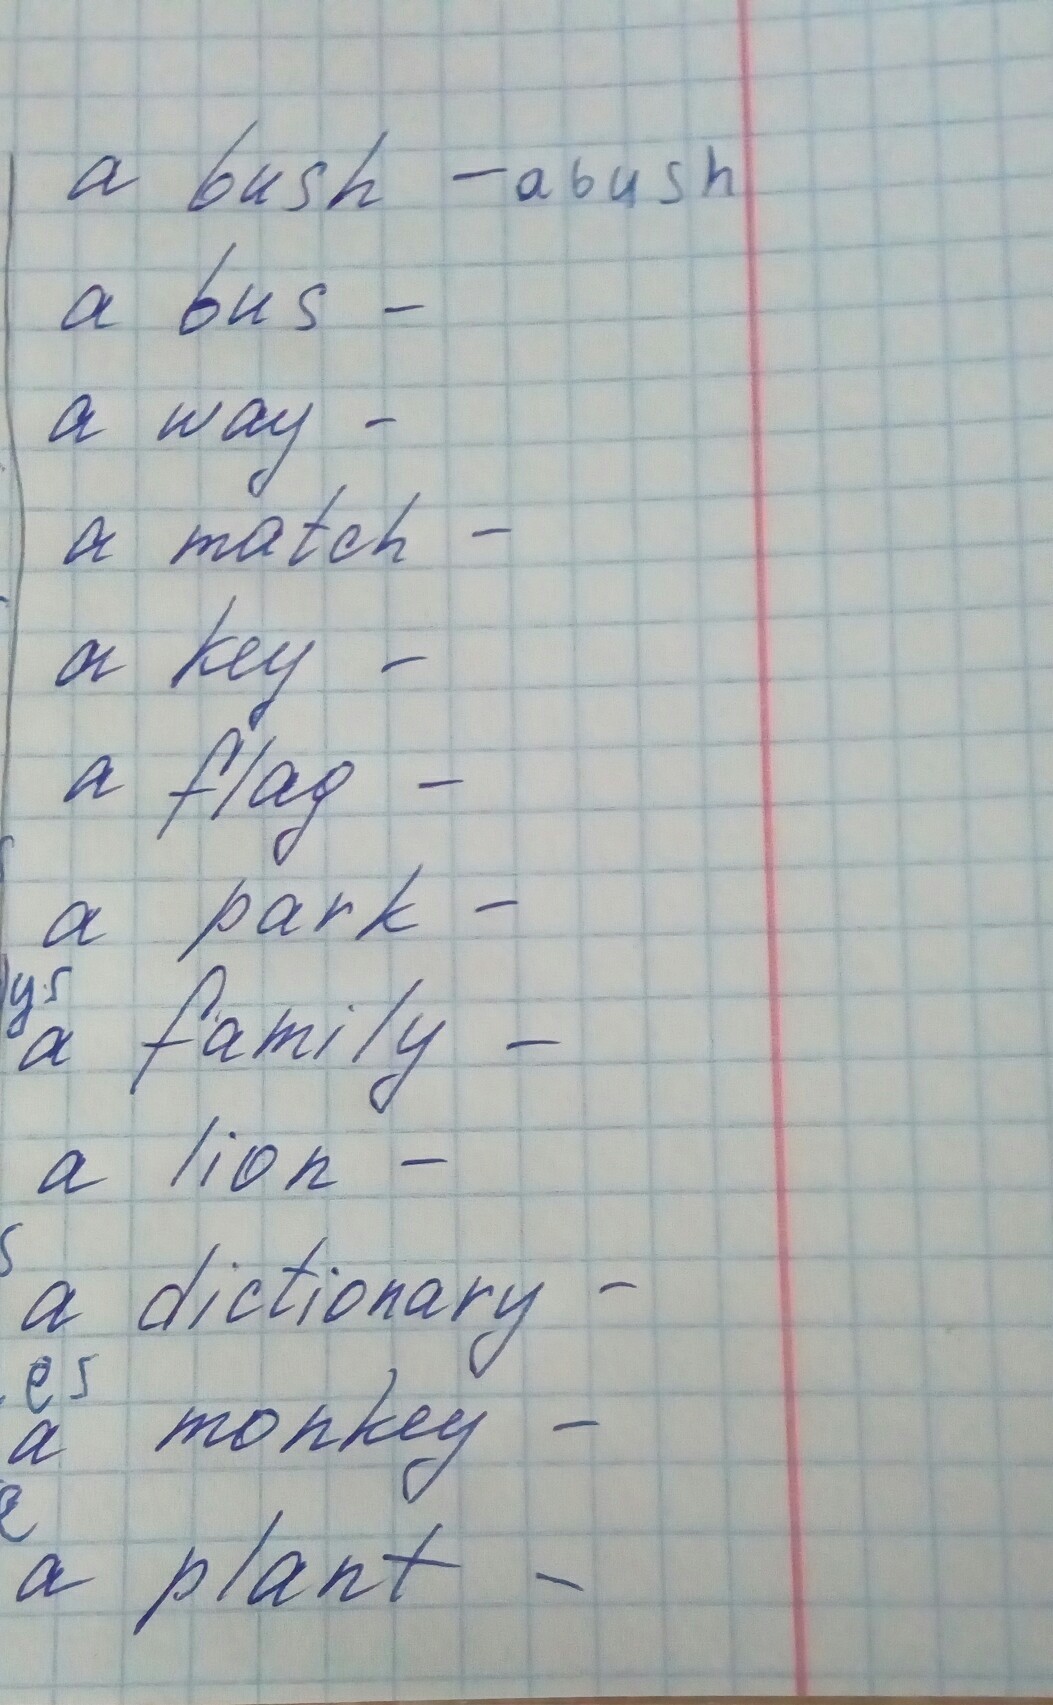 a bush - abush
a bus -
a way -
a match -
a key -
a flag -
a park -
ys
a family -
a lion -
s
a dictionary -
es
a monkey -
e
a plant -